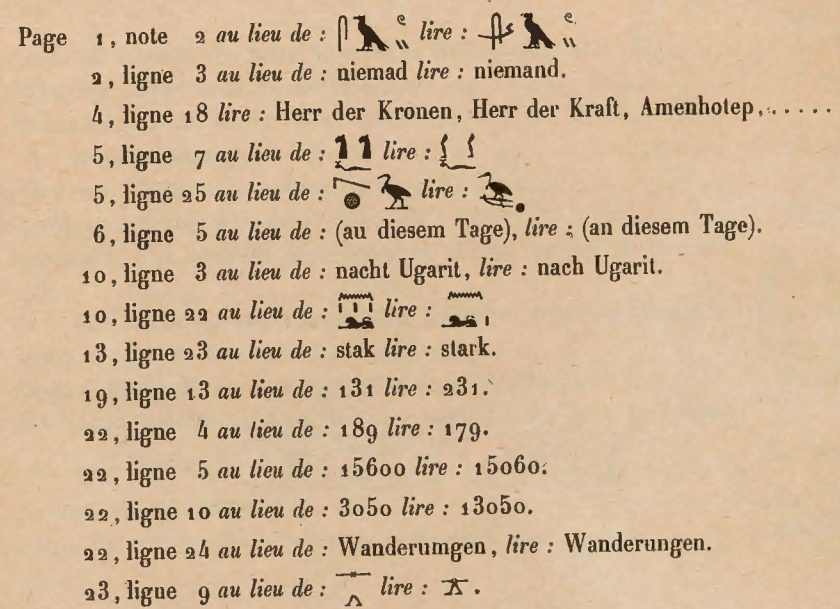 Page 1, note 2 au lieu de : lire :
2, ligne 3 au lieu de : niemad lire : niemand.
4, ligne 18 lire : Herr der Kronen, Herr der Kraft, Amenhotep,......
5, ligne 7 au lieu de : lire :
5, ligne 25 au lieu de : lire :
6, ligne 5 au lieu de : (au diesem Tage), lire : (an diesem Tage).
10, ligne 3 au lieu de : nacht Ugarit, lire : nach Ugarit.
10, ligne 22 au lieu de : lire :
13, ligne 23 au lieu de : stak lire : stark.
19, ligne 13 au lieu de : 131 lire : 231.
22, ligne 4 au lieu de : 189 lire : 179.
22, ligne 5 au lieu de : 15600 lire : 15060.
22, ligne 10 au lieu de : 3050 lire : 13050.
22, ligne 24 au lieu de : Wanderumgen, lire : Wanderungen.
23, ligne 9 au lieu de : lire : .